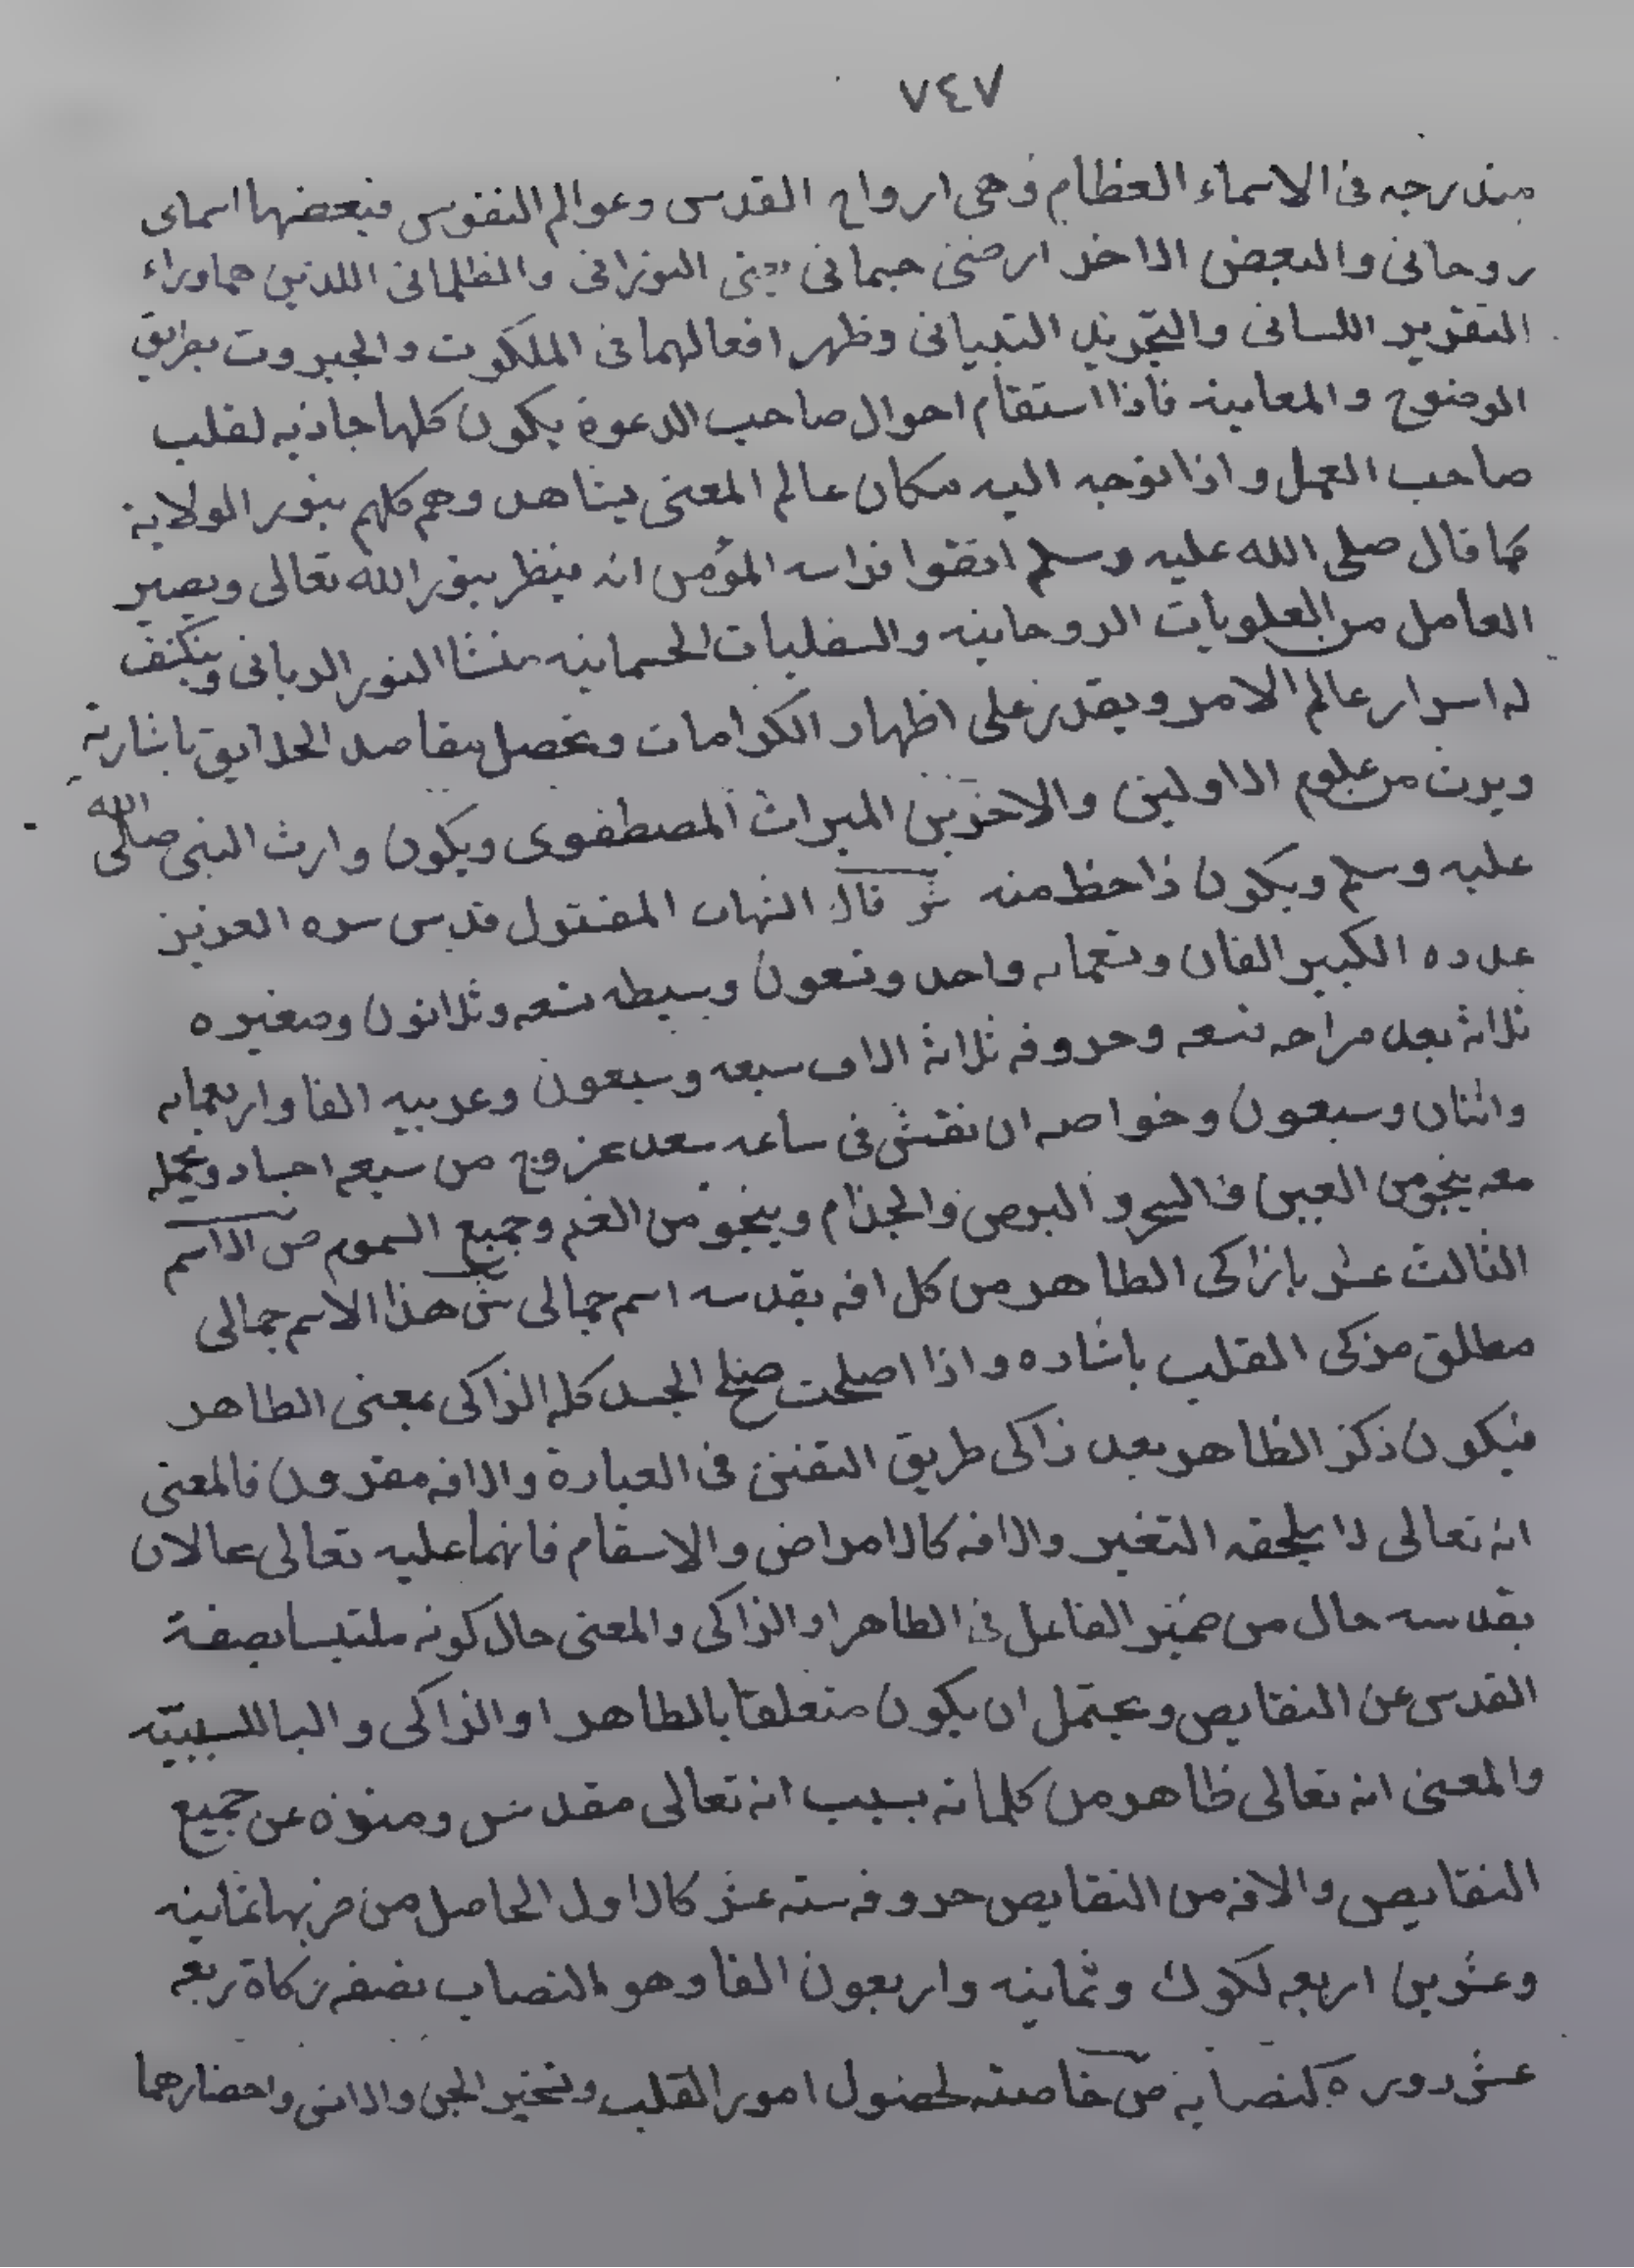 ٧٤٧
مندرجه فى الاسماء العظام وهى ارواح القدس وعوالم النفوس فبعضها اسماى
روحانى والبعض الاخر ارضى جسمانى يعنى النورانى والظلمانى اللذين هما وراء
التقرير اللسانى والتجريد التبيانى وظهر افعالهما فى الملكوت والجبروت بطريق
الوضوح والمعاينه فاذا استقام احوال صاحب الدعوة يكون كلها جاذبه لقلب
صاحب العمل واذا توجه اليه سكان عالم المعنى يشاهد وهم كلهم بنور الولاية
كما قال صلى الله عليه وسلم اتقوا فراسه المؤمن انه ينظر بنور الله تعالى ويصير
العامل من العلويات الروحانيه والسفليات الجسمانيه منشا النور الربانى وينكشف
له اسرار عالم الامر ويقدر على اظهار الكرامات وتحصل مقاصد الخلايق باشارته
ويرث من علوم الاولين والاخرين الميراث المصطفوى ويكون وارث النبى صلى الله
عليه وسلم ويكون ذا حظ منه قال الشهاب المقتول قدس سره العزيز
عدده الكبير الفان وتسعمايه واحد وتسعون وسيطه تسعه وثلاثون وصغيره
ثلاثة بعد مراحه تسعه وحروفه ثلاثة الاف سبعه وسبعون وعربيه الفا واربعمايه
واثنان وسبعون وخواصه ان نقش فى ساعه سعد عزوج من سبعه اجساد ويحمله
معه ينجو من العين والسحر والبرص والجذام وينجو من الغم وجميع السموم ص الاسم
الثالث عشر يا زاكى الطاهر من كل افه بقدسه اسم جمالى ش هذا الاسم جمالى
مطلق مزكى القلب باشاره واذا اصلحت صلح الجسد كله الزاكى بمعنى الطاهر
فيكون ذكر الطاهر بعد زاكى طريق التفنن فى العبارة والافه مقرون فالمعنى
انه تعالى لا يلحقه التغير والافه كالامراض والاسقام فانهما عليه تعالى محالان
بقدسه حال من ضمير الفاعل فى الطاهر او الزاكى والمعنى حال كونه ملتبسا بصفة
القدس عن النقايص ويحتمل ان يكون متعلقا بالطاهر او الزاكى والبا للسببيته
والمعنى انه تعالى طاهر من كلماته بسبب انه تعالى مقدس ومنزه عن جميع
النقايص والافه من النقايص حروفه سته عشر كالاول الحاصل من ضربها ثمانيه
وعشرين اربعه لكوك وثمانيه واربعون الفا وهو النصاب نصفه زكاة ربعه
عشر دوره كنصابه ص خاصته لحصول امور القلب وتسخير الجن والانس واحضارهما